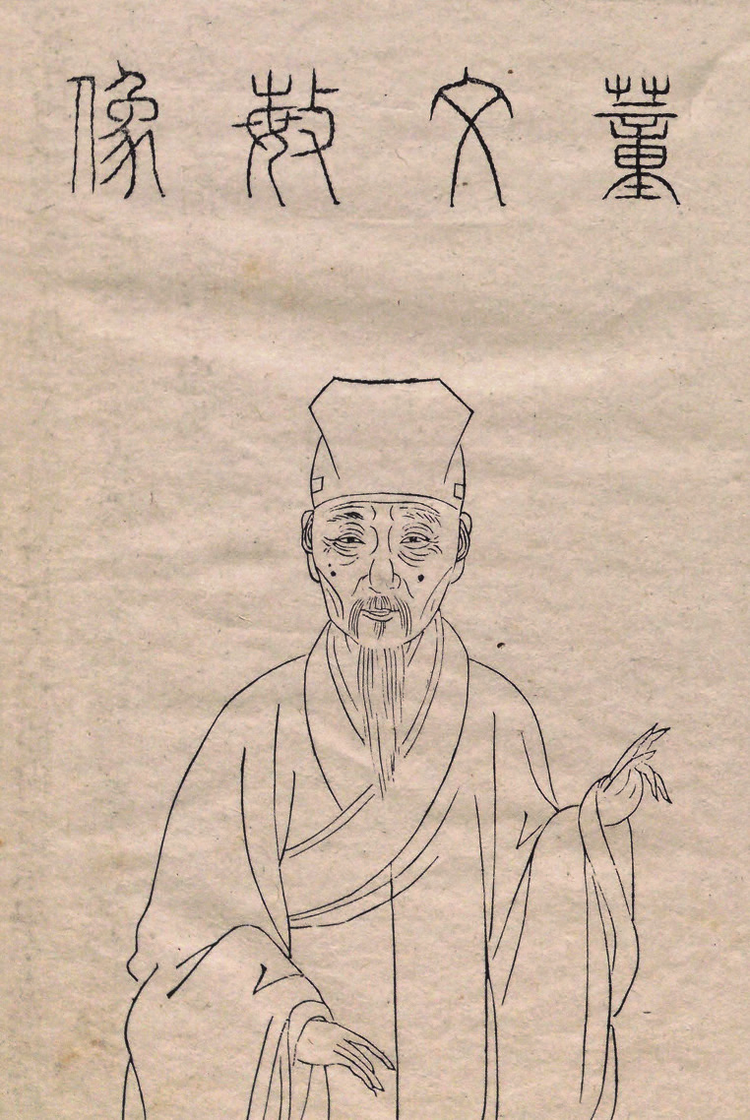 董文敏像